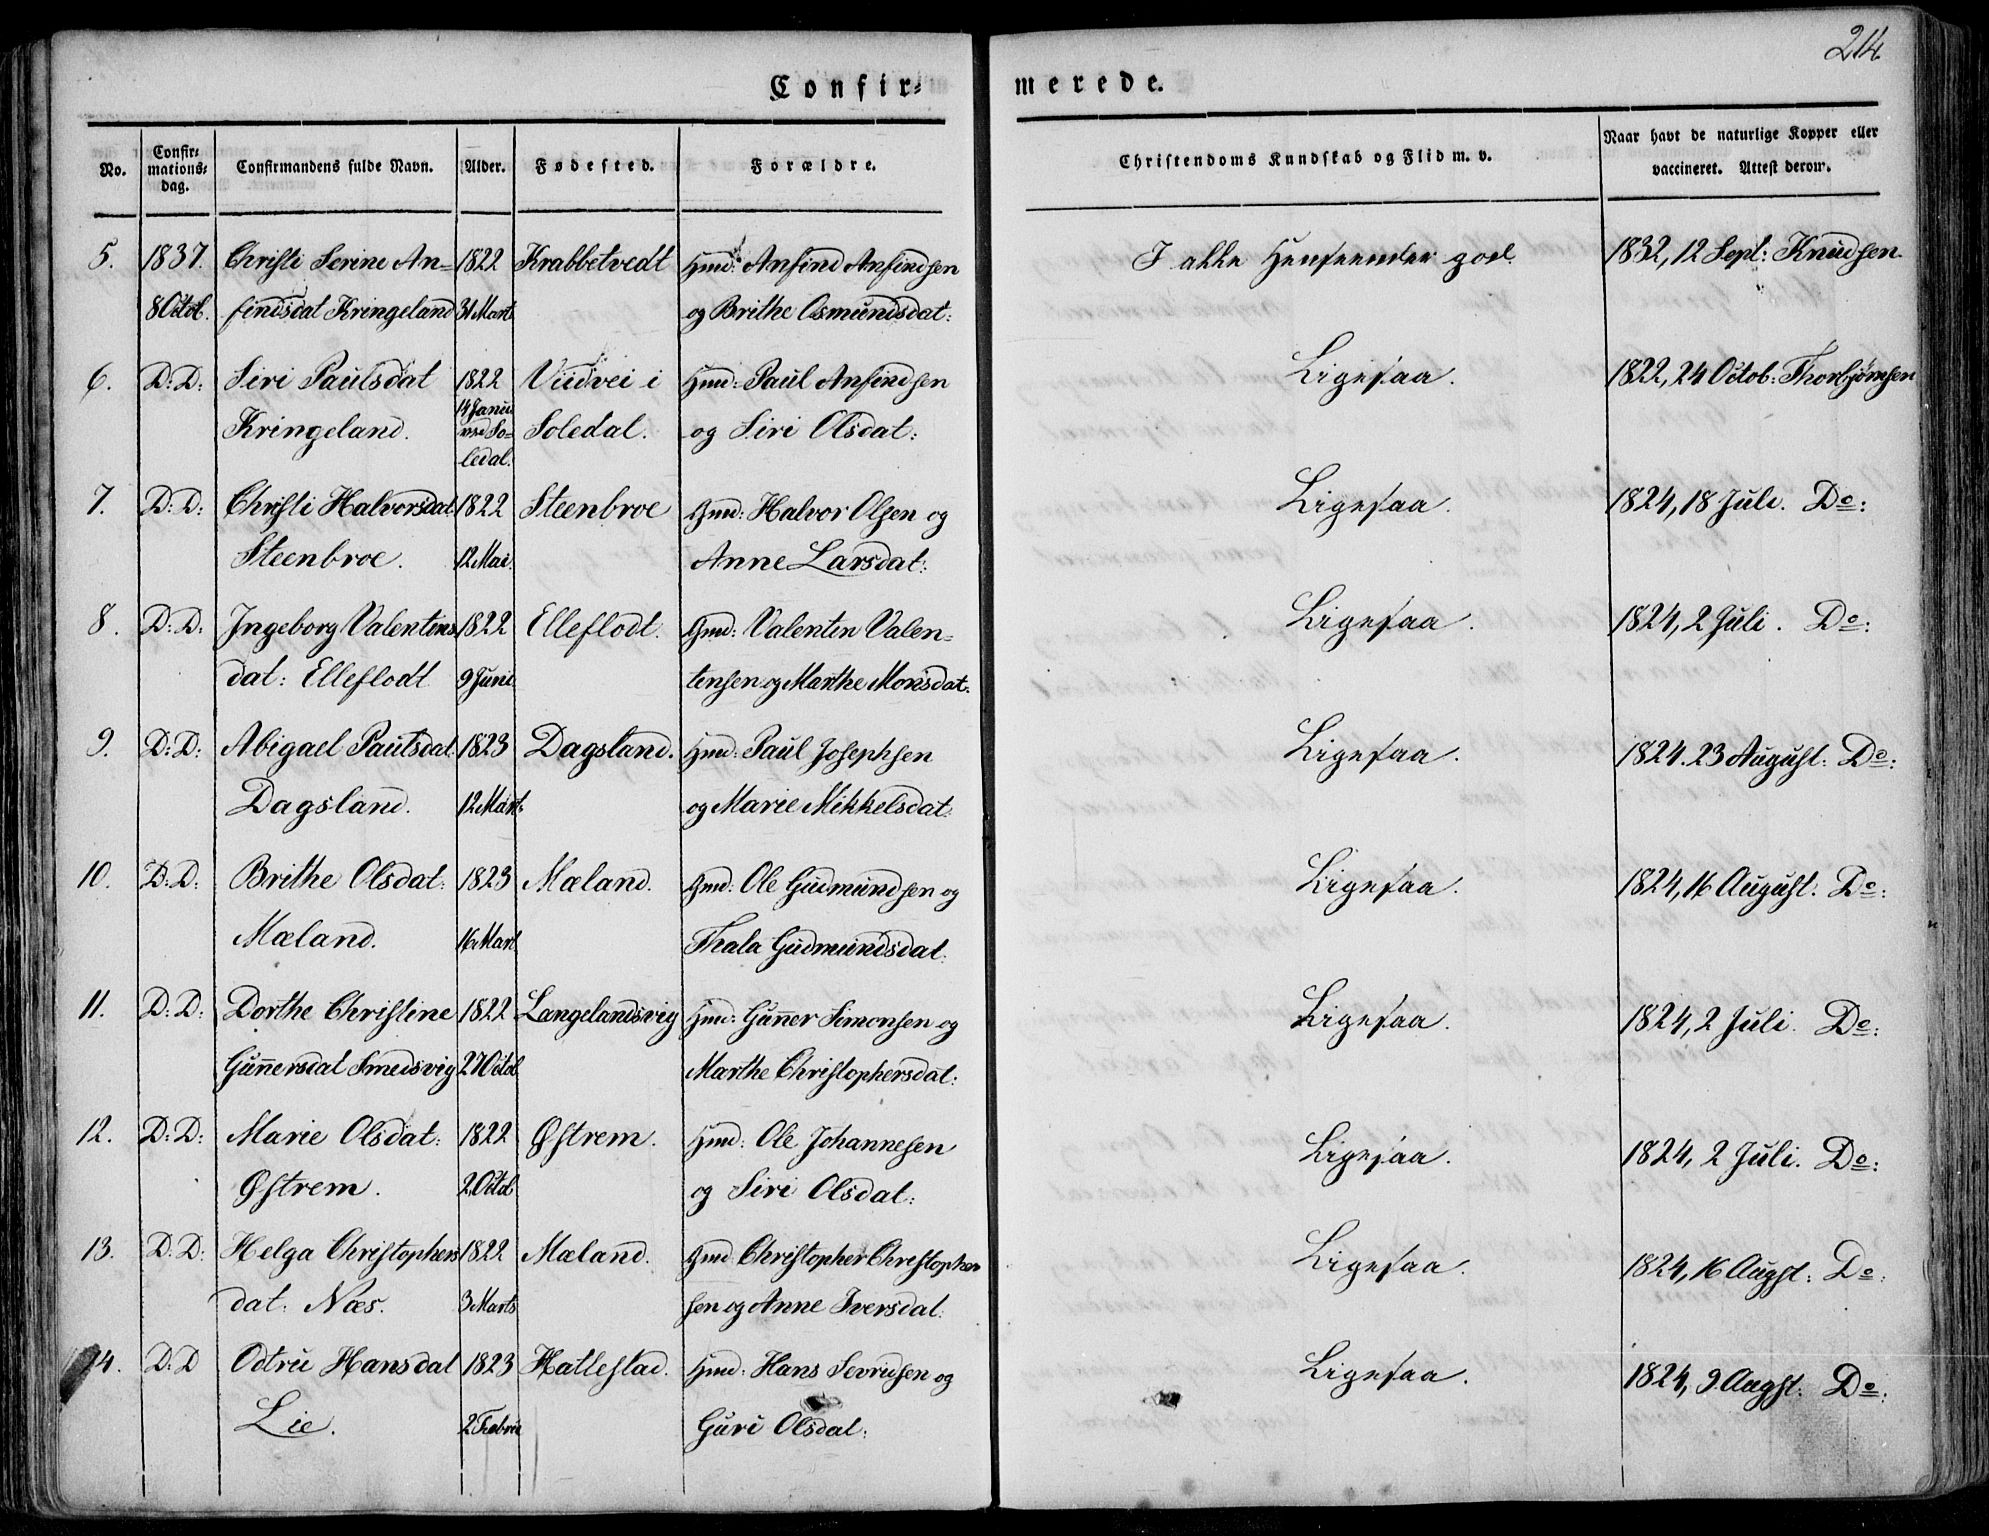 214.
Confir=
merede.
No.
Confir=
mations=
dag.
Confirmandens fulde Navn.
Alder.
Fødested.
Forældre.
Christendoms Kundskab og Flid m. v.
Naar havt de naturlige Kopper eller
vaccineret. Attest derom.
5. 1837. Christi Serine An= 1822 Krabbetvedt Hmd: Anfind Anfindsen I alle Henseender god. 1832, 12 Sept: Knudsen.
8 Octob. findsdat Kringeland 31 Mart. og Brithe Osmundsdat:
6. D: D: Siri Paulsdat 1822 i Hmd: Paul Anfindsen Ligesaa. 1822, 24 Octob: Thorbjørnsen
14 Janu
Kringeland. Soledal. og Siri Olsdat:
ledal.
7. D: D: Christi Halvorsdat 1822 Steenbroe Gmd: Halvor Olsen og Ligesaa. 1824, 18 Juli. Do:
Steenbroe. 12 Mai. Anne Larsdat:
8. D: D: Ingeborg Valentins 1822 Elleflodt. Gmd: Valentin Valen= Ligesaa. 1824, 2 Juli. Do:
dat: Elleflodt 9 Juni tensen og Marthe Monsdat:
9. D: D: Abigael Paulsdat 1823 Dagsland. Hmd: Paul Josephsen Ligesaa. 1824. 23 August: Do:
Dagsland. 12 Mart. og Marie Mikkelsdat:
10. D: D: Brithe Olsdat: 1823 Mæland. Gmd: Ole Gudmundsen og Ligesaa. 1824, 16 August. Do:
Mæland. 16 Mart Thala Gudmundsdat:
11. D: D: Dorthe Christine 1822 Længelandsvig Hmd: Gunner Simonsen og Ligesaa. 1824, 2 Juli. Do:
Gunnersdat Smedsvig 27 Octob Marthe Christophersdat:
12. D: D: Marie Olsdat: 1822 Østrem. Hmd: Ole Johannesen Ligesaa. 1824, 2 Juli. Do:
Østrem. 2 Octob og Siri Olsdat:
13. D: D: Helga Christophers 1822 Mæland. Gmd Christopher Christopher Ligesaa. 1824, 16 Augst: Do:
dat: Næs. 3 Marts sen og Anne Iversdat:
14. D: D Odtru Hansdat 1823 Hatlestad. Hmd: Hans Sevrudsen og Ligesaa. 1824, 9 Augst: Do:
Lie. 2 Febru Guri Olsdat: